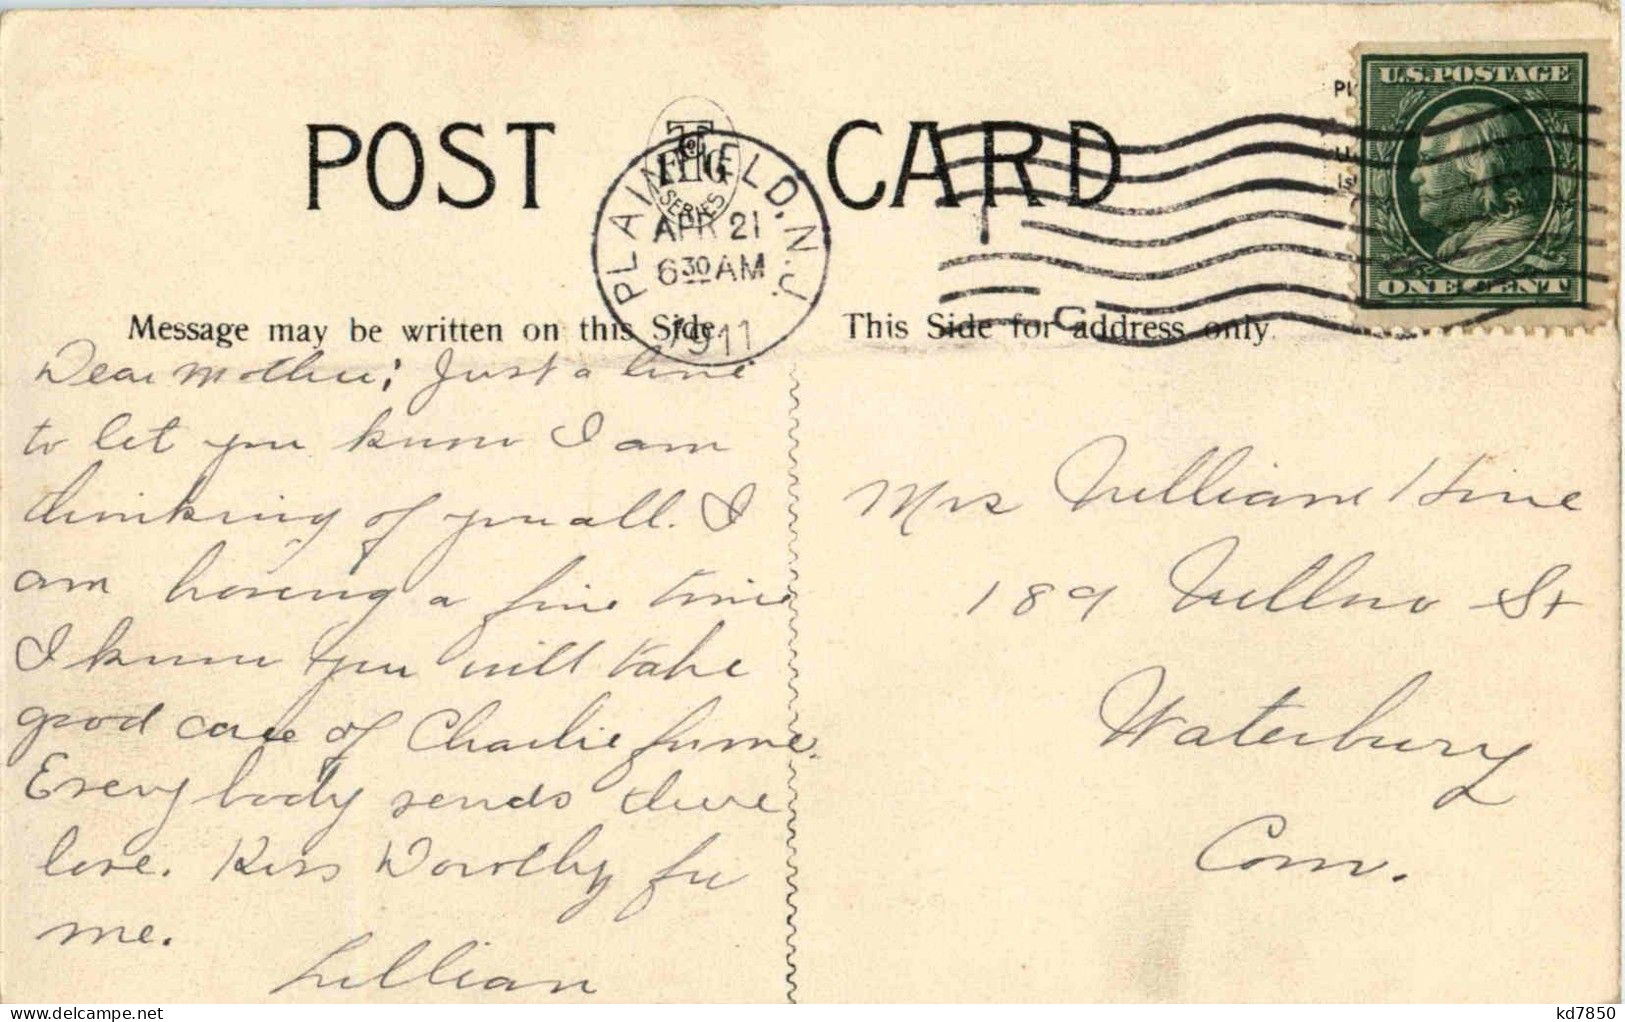 POST CARD
FLIG
SERIES
PLAINFIELD. N.J.
APR 21
6 30 AM
1911
U.S. POSTAGE
ONE CENT
Message may be written on this Side.
This Side for address only.
Dear Mother; Just a line
to let you know I am
thinking of you all. I
am having a fine time
I know you will take
good care of Charlie for me.
Every body sends there
love. Kiss Dorothy for
me.
Lillian
Mrs William Hine
189 Willow St
Waterbury
Conn.
kd7850